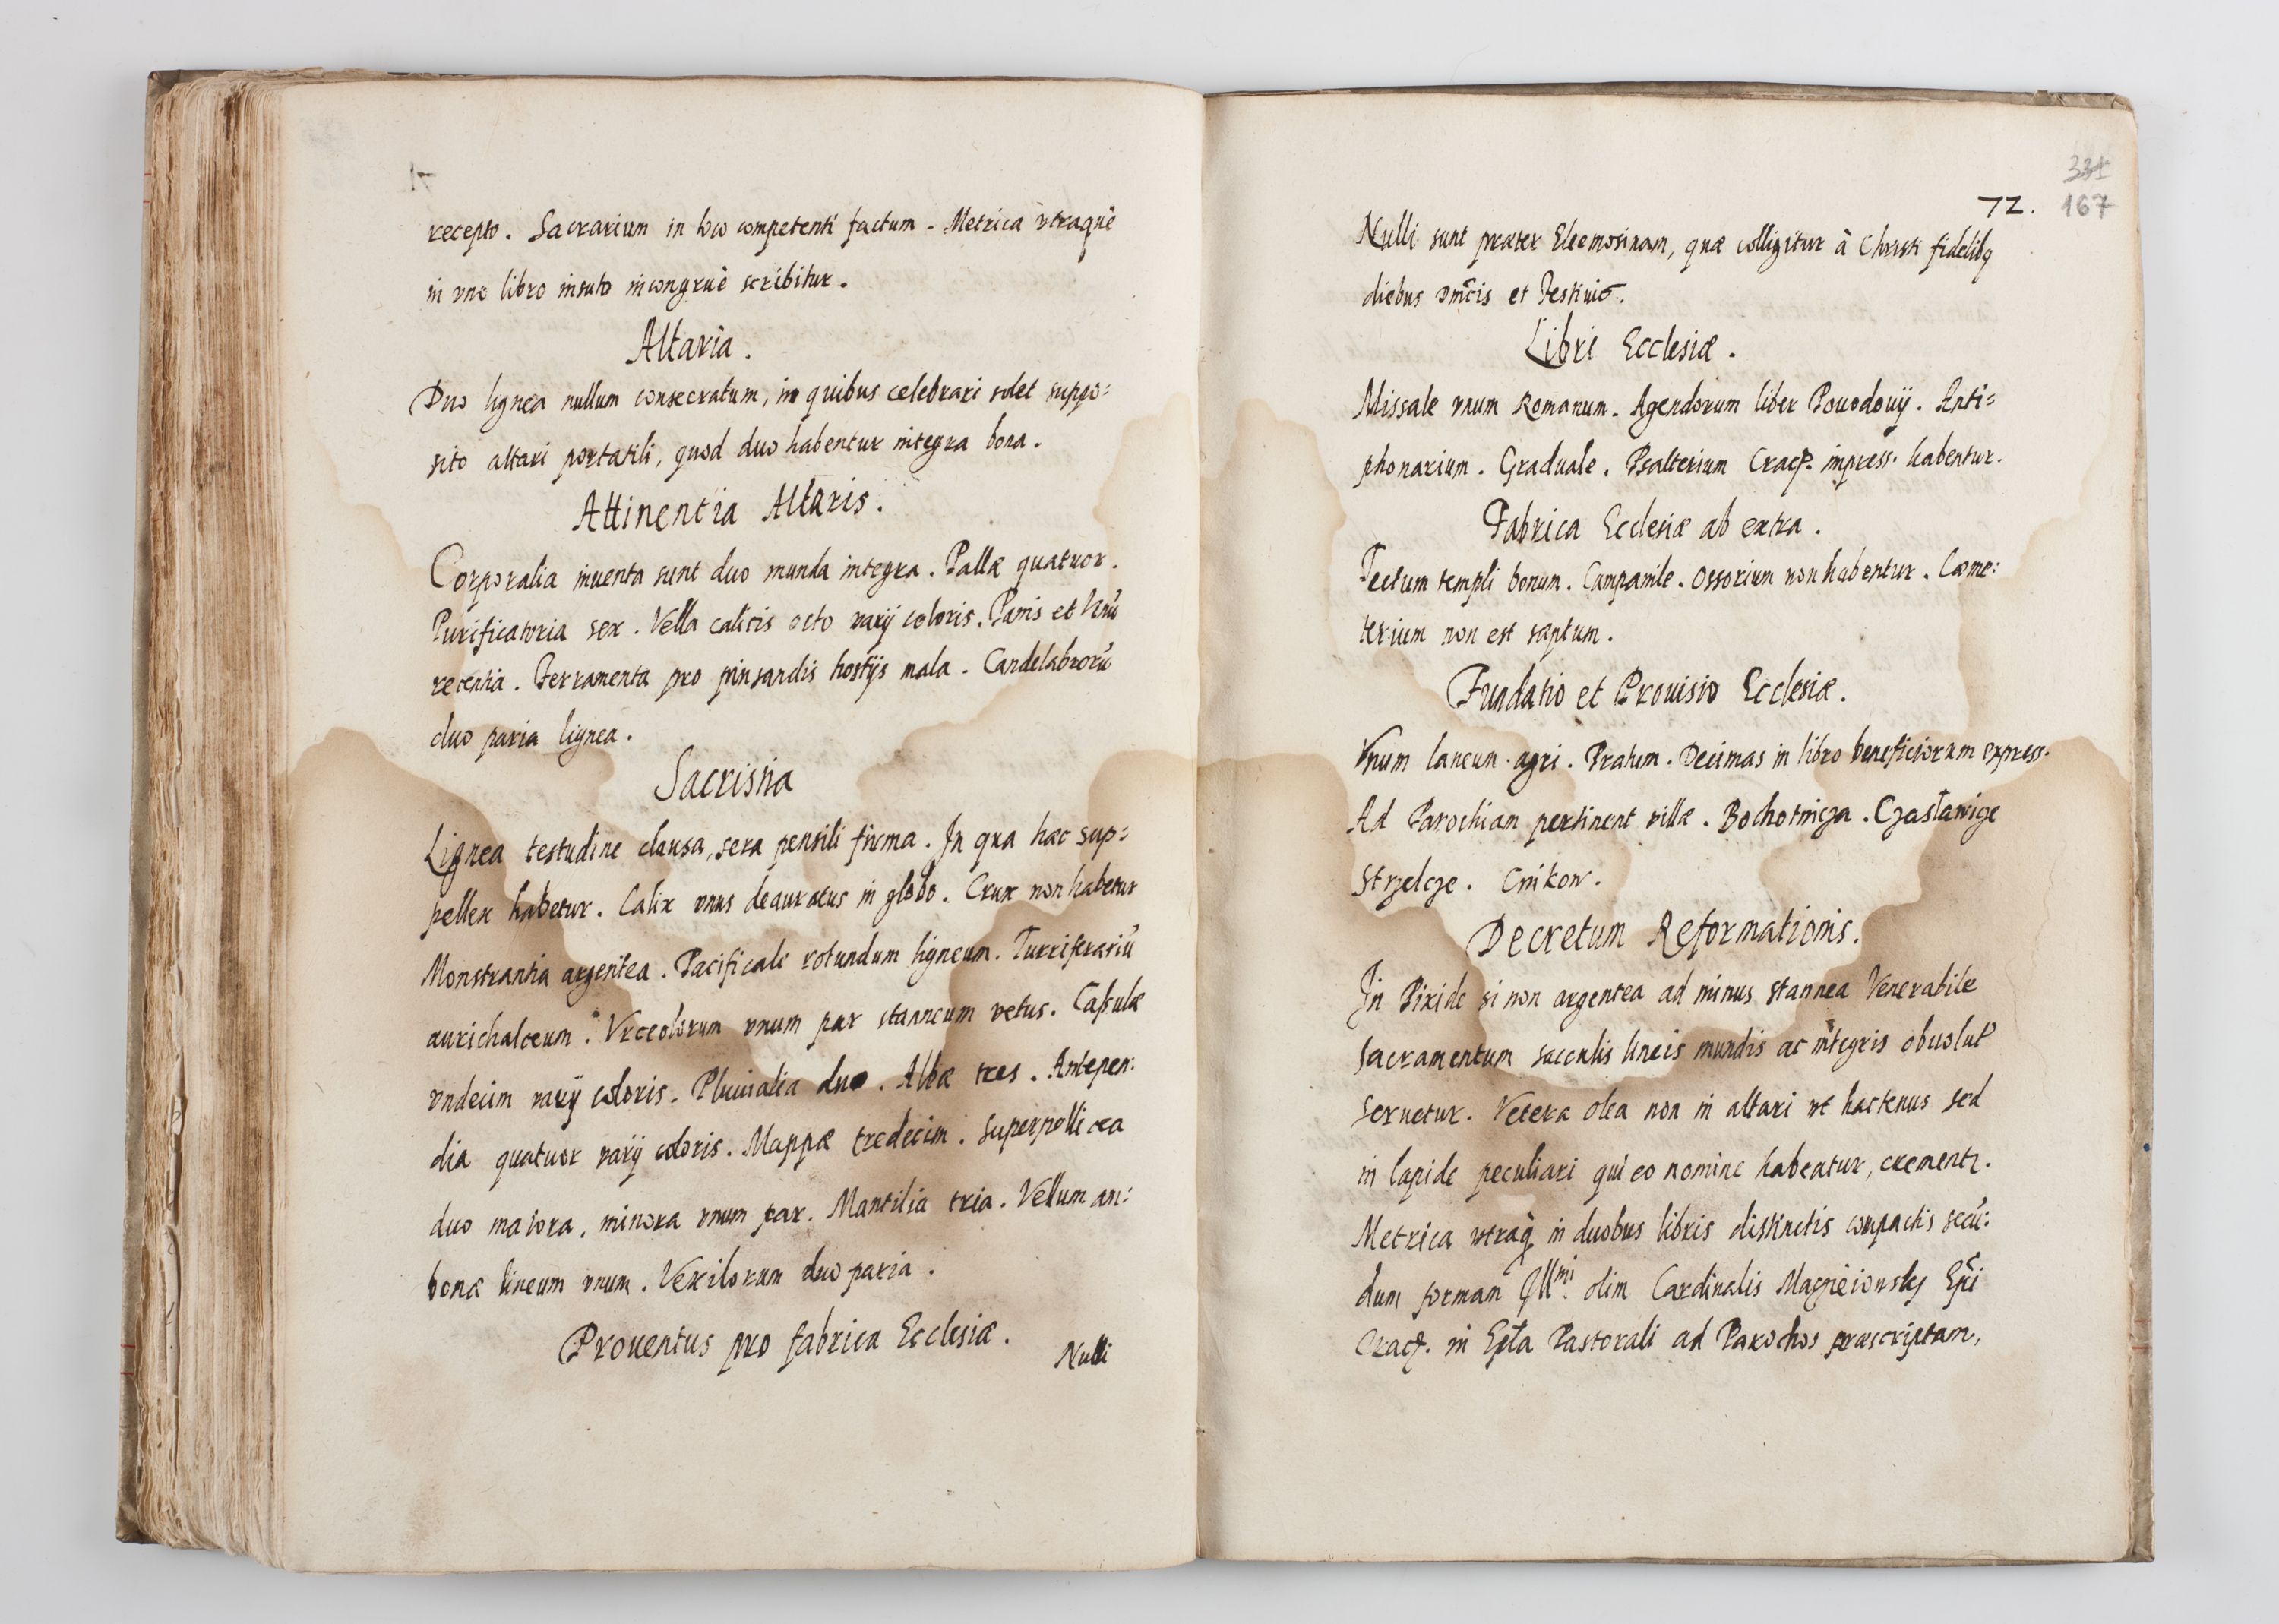 recepto. Sacrarium in loco competenti factum. Metrica vtraque
in vno libro insuto incongruè scribitur.
Altaria.
Duo lignea nullum consecratum, in quibus celebrari solet suppo:
sito altari portatili, quod duo habentur integra bona.
Attinentia Altaris.
Corporalia inuenta sunt duo munda integra. Pallæ quatuor.
Purificatoria sex. Vella calicis octo varij coloris. Panis et Vinũ
recentia. Ferramenta pro pinsandis hostijs mala. Candelabrorũ
duo paria lignea.
Sacristia
Lignea testudine clausa, sera pensili firma. In qua hæc sup:
pellex habetur. Calix vnus deauratus in globo. Crux non habetur
Monstrantia argentea. Pacificale rotundum ligneum. Turriferariũ
aurichalceum. Vrceolorum vnum par stanneum vetus. Casulæ
vndecim varij coloris. Pluuialia duo. Albæ tres. Antepen:
dia quatuor varij coloris. Mappæ tredecim. Superpellicea
duo maiora, minora vnum par. Mantilia tria. Vellum am:
bonæ lineum vnum. Vexilorum duo paria.
Prouentus pro fabrica Ecclesiæ.
Nulli
72.
331
167
Nulli sunt præter Eleemosinam, quæ colligitur à Christi fidelibq
diebus Dnĩcis et Festiuis.
Libri Ecclesiæ.
Missale vnum Romanum. Agendorum liber Pouodouij. Anti=
phonarium. Graduale. Psalterium Crac. impress. habentur.
Fabrica Ecclesiæ ab extra.
Tectum templi bonum. Campanile. Ossorium non habentur. Cæme:
terium non est sæptum.
Fundatio et Prouisio Ecclesiæ.
Vnum laneum agri. Pratum. Decimas in libro beneficiorum express.
Ad Parochiam pertinent villæ. Bochotnicza. Czasławice
Strzelcze. Cinkow.
Decretum Reformationis.
In Pixide si non argentea ad minus stannea Venerabile
Sacramentum sacculis lineis mundis ac integris obuolut
Seruetur. Vetera olea non in altari vt hactenus sed
in lapide peculiari qui eo nomine habeatur, crementr.
Metrica vtraq in duobus libris distinctis compactis secũ:
dum formam Illmi. olim Cardinalis Macieiowsky Epĩ
Crac. in Epla Pastorali ad Parochos præscriptam,